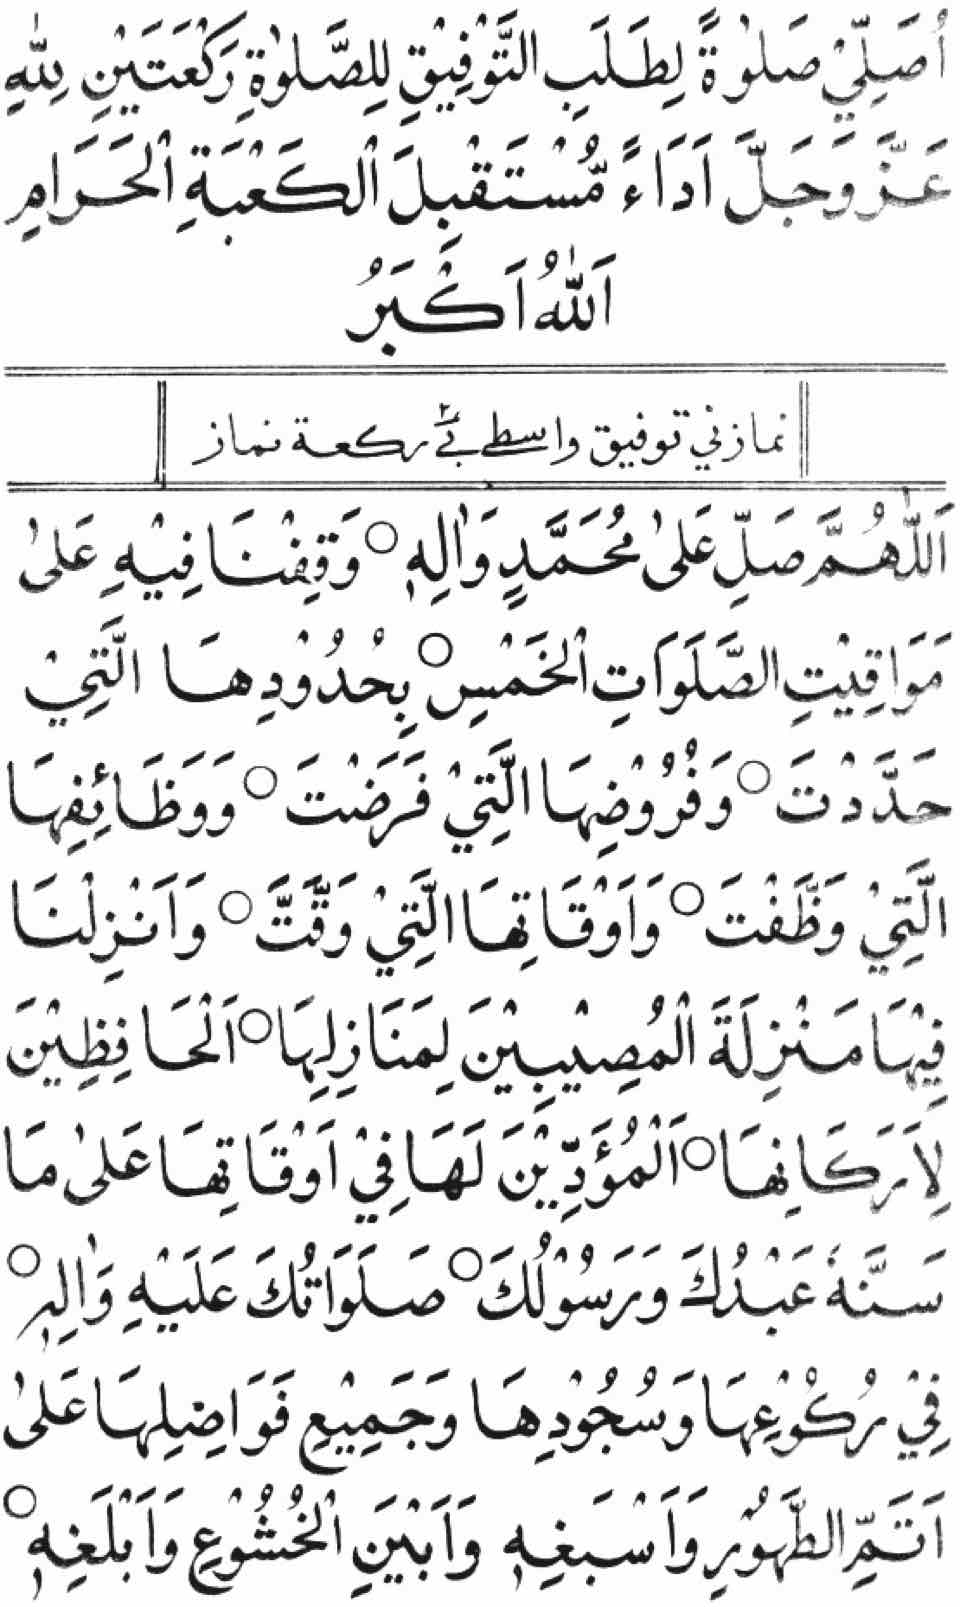 اُصَلِّيْ صَلٰوةً لِطَلَبِ التَّوْفِيْقِ لِلصَّلٰوةِ رَكْعَتَيْنِ لِلّٰهِ
عَزَّ وَجَلَّ اَدَاءً مُّسْتَقْبِلَ الْكَعْبَةِ الْحَرَامِ
اَللّٰهُ اَكْبَرُ
نمازني توفيق واسطے بے ركعة نماز
اَللّٰهُمَّ صَلِّ عَلىٰ مُحَمَّدٍ وَاٰلِهٖ ○ وَقِفْنَا فِيْهِ عَلىٰ
مَوَاقِيْتِ الصَّلَوَاتِ الْخَمْسِ ○ بِحُدُوْدِهَا الَّتِيْ
حَدَّدْتَ ○ وَفُرُوْضِهَا الَّتِيْ فَرَضْتَ ○ وَوَظَائِفِهَا
الَّتِيْ وَظَّفْتَ ○ وَاَوْقَاتِهَا الَّتِيْ وَقَّتَّ ○ وَاَنْزِلْنَا
فِيْهَا مَنْزِلَةَ الْمُصِيْبِيْنَ لِمَنَازِلِهَا ○ اَلْحَافِظِيْنَ
لِاَرَكَانِهَا ○ اَلْمُؤَدِّيْنَ لَهَا فِيْ اَوْقَاتِهَا عَلىٰ مَا
سَنَّهٗ عَبْدُكَ وَرَسُوْلُكَ ○ صَلَوَاتُكَ عَلَيْهِ وَاٰلِهٖ ○
فِيْ رُكُوْعِهَا وَسُجُوْدِهَا وَجَمِيْعِ فَوَاضِلِهَا عَلىٰ
اَتَمِّ الطَّهُوْرِ وَاَسْبَغِهٖ وَاَبْيَنِ الْخُشُوْعِ وَاَبْلَغِهٖ ○